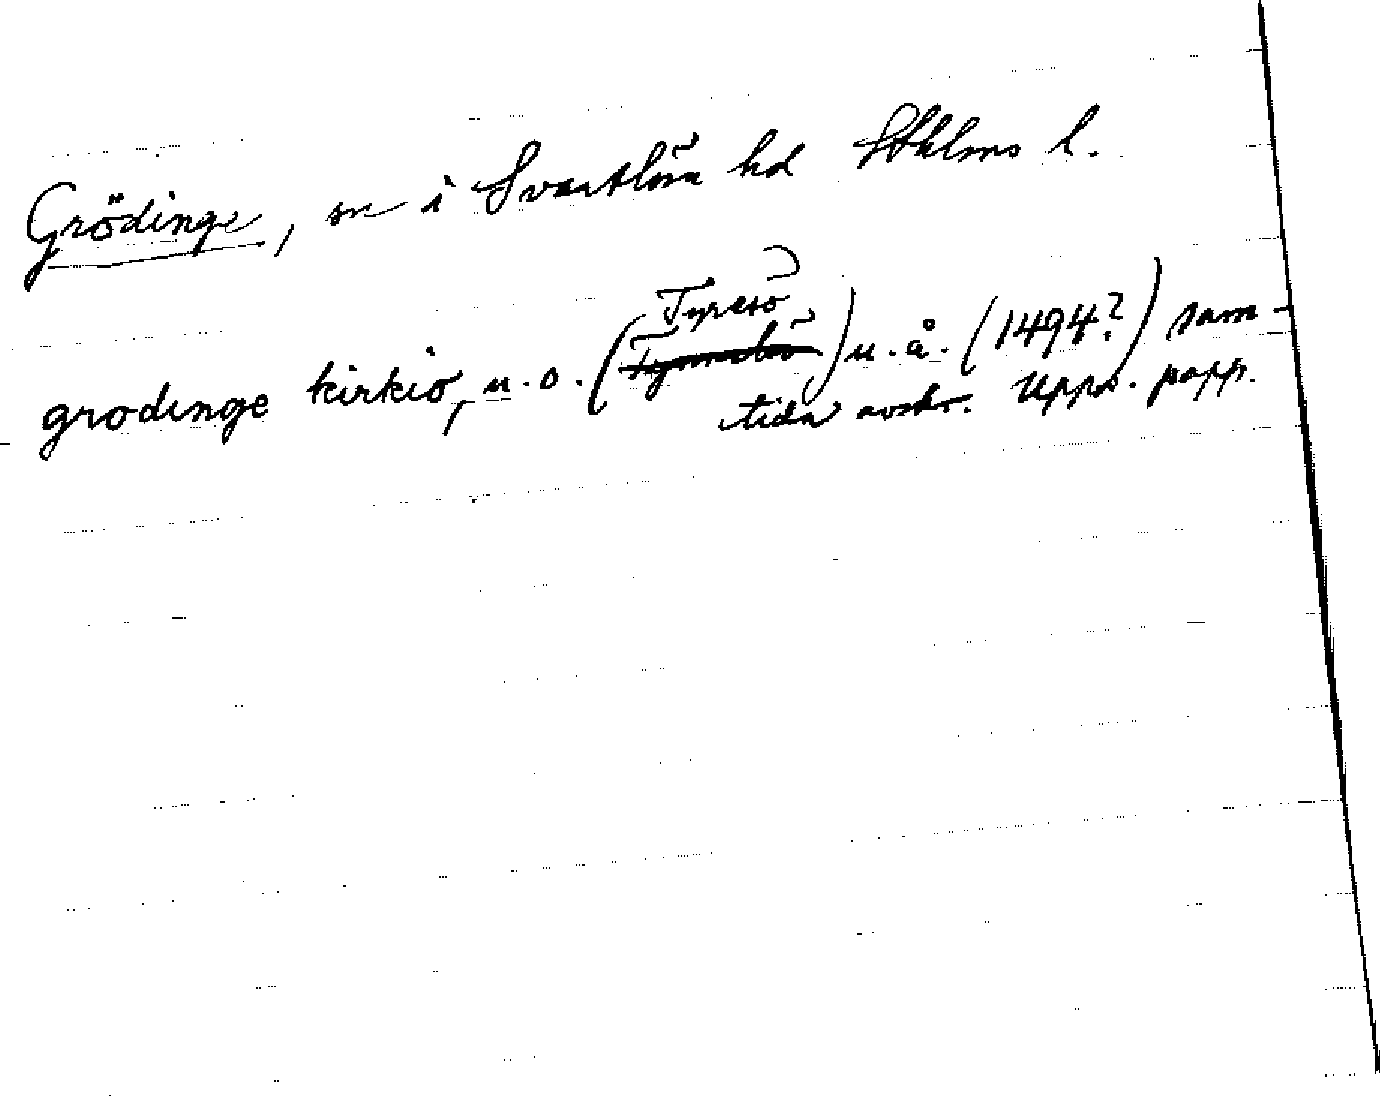 Grödinge, sn i Svartlösa hd Sthlms l.
grodinge kirkio, u.o. (Tyresö) u.å. (1494?) sam-
tida avskr. Upps. papp.